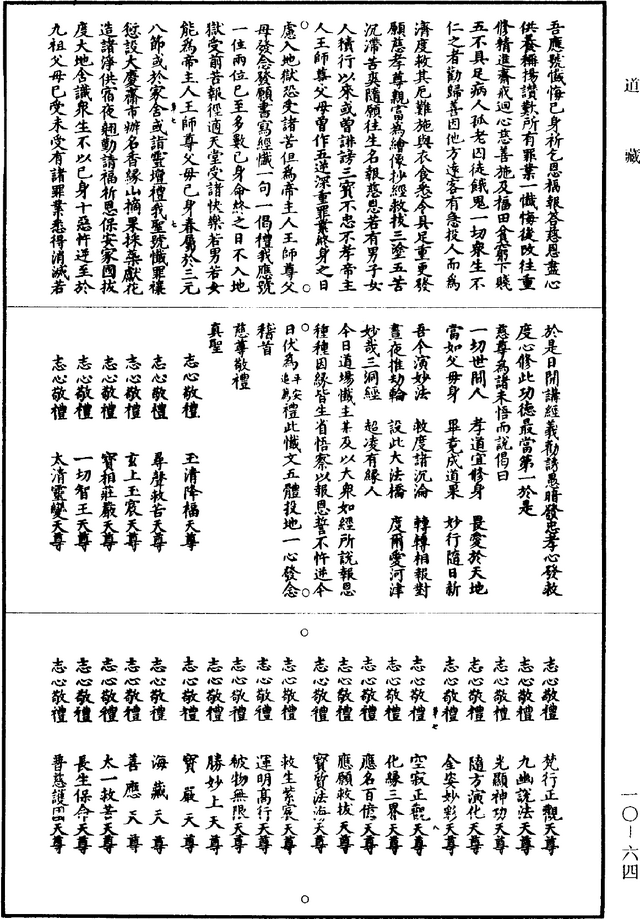 道藏
吾應號懺悔已身祈乞恩福報答慈恩盡心
供養稱揚讚歎所有罪業一懺悔後改往重
修精進齋戒迴心慈善施及福田貧窮下賤
五不具足病人孤老囚徒餓鬼一切衆生不
仁之者勸歸善因他方遠客有急投人而為
濟度救其厄難施與衣食悉令具足重更發
願慈孝尊親當為繪像抄經救拔三塗五苦
沉滯苦爽隨願往生名報慈恩若有男子女
人積行以來或曾誹謗三寶不忠不孝帝主
人王師尊父母曾作五逆深重罪業終身之日
慮入地獄恐受諸苦但為帝主人王師尊父
母發念發願書寫經懺一句一偈禮我應號
一住兩位已至多數已身命終之日不入地
獄受前苦報徑適天堂受諸快樂若男若女
能為帝主人王師尊父母已身眷屬於三元
八節或於家舍或詣靈壇禮我聖號懺罪禳
愆設大慶齋市辦名香緣山摘果採蘂獻花
造諸淨供宿夜翹勤請福祈恩保安家國拔
度大地含識衆生不以已身十惡忤逆至於
九祖父母已受未受有諸罪業悉得消滅若
於是日開講經義勸誘愚暗發忠孝心發救
度心修此功德最當第一於是
慈尊為諸未悟而說偈曰
一切世間人 孝道宜修身 畏愛於天地
當如父母身 畢竟成道果 妙行隨日新
吾今演妙法 救度諸沉淪 轉轉相報對
晝夜推劫輪 設此大法橋 度爾愛河津
妙哉三洞經 超凌有緣人
今日道場懺主某及以大衆如經所說報恩
種種因緣皆生省悟察以報恩誓不忤逆今
日伏為平安追為禮此懺文五體投地一心發念
稽首
慈尊敬禮
真聖
志心敬禮 玉清降福天尊
志心敬禮 尋聲救苦天尊
志心敬禮 玄上玉宸天尊
志心敬禮 寶相莊嚴天尊
志心敬禮 一切智王天尊
志心敬禮 太清靈變天尊
志心敬禮 梵行正觀天尊
志心敬禮 九幽說法天尊
志心敬禮 光顯神功天尊
志心敬禮 隨方演化天尊
志心敬禮 金姿妙彩天尊
志心敬禮 空寂正觀天尊
志心敬禮 化緣三界天尊
志心敬禮 應名百億天尊
志心敬禮 應願救拔天尊
志心敬禮 寶質法海天尊
志心敬禮 救生紫宸天尊
志心敬禮 運明高行天尊
志心敬禮 被物無限天尊
志心敬禮 勝妙上天尊
志心敬禮 寶嚴天尊
志心敬禮 海藏天尊
志心敬禮 善應天尊
志心敬禮 太一救苦天尊
志心敬禮 長生保命天尊
志心敬禮 普慈護國天尊
一〇—六四